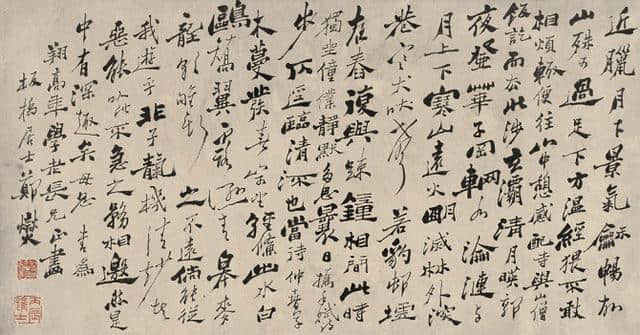 近臘月下景氣龢暢故
山殊可過足下方溫經猥不敢
相煩輒便往山中憩感配寺與山僧
飯訖而去北涉玄灞清月映郭
夜登華子岡輞水淪漣與
月上下寒山遠火明滅林外深
巷寒犬吠聲若豹邨墟
夜舂復與疎鐘相間此時
獨坐僮僕靜默多思曩日攜手賦詩
步仄逕臨清流也當待仲春草
木蔓發春山可望輕鯈出水白
鷗矯翼露濕青皋麥
隴朝雊斯之不遠倘能從
我遊乎非子天機清妙者
惡能以此不急之務相邀然是
中有深趣矣毋忽 書為
翔高年學老長兄正畫
板橋居士鄭燮